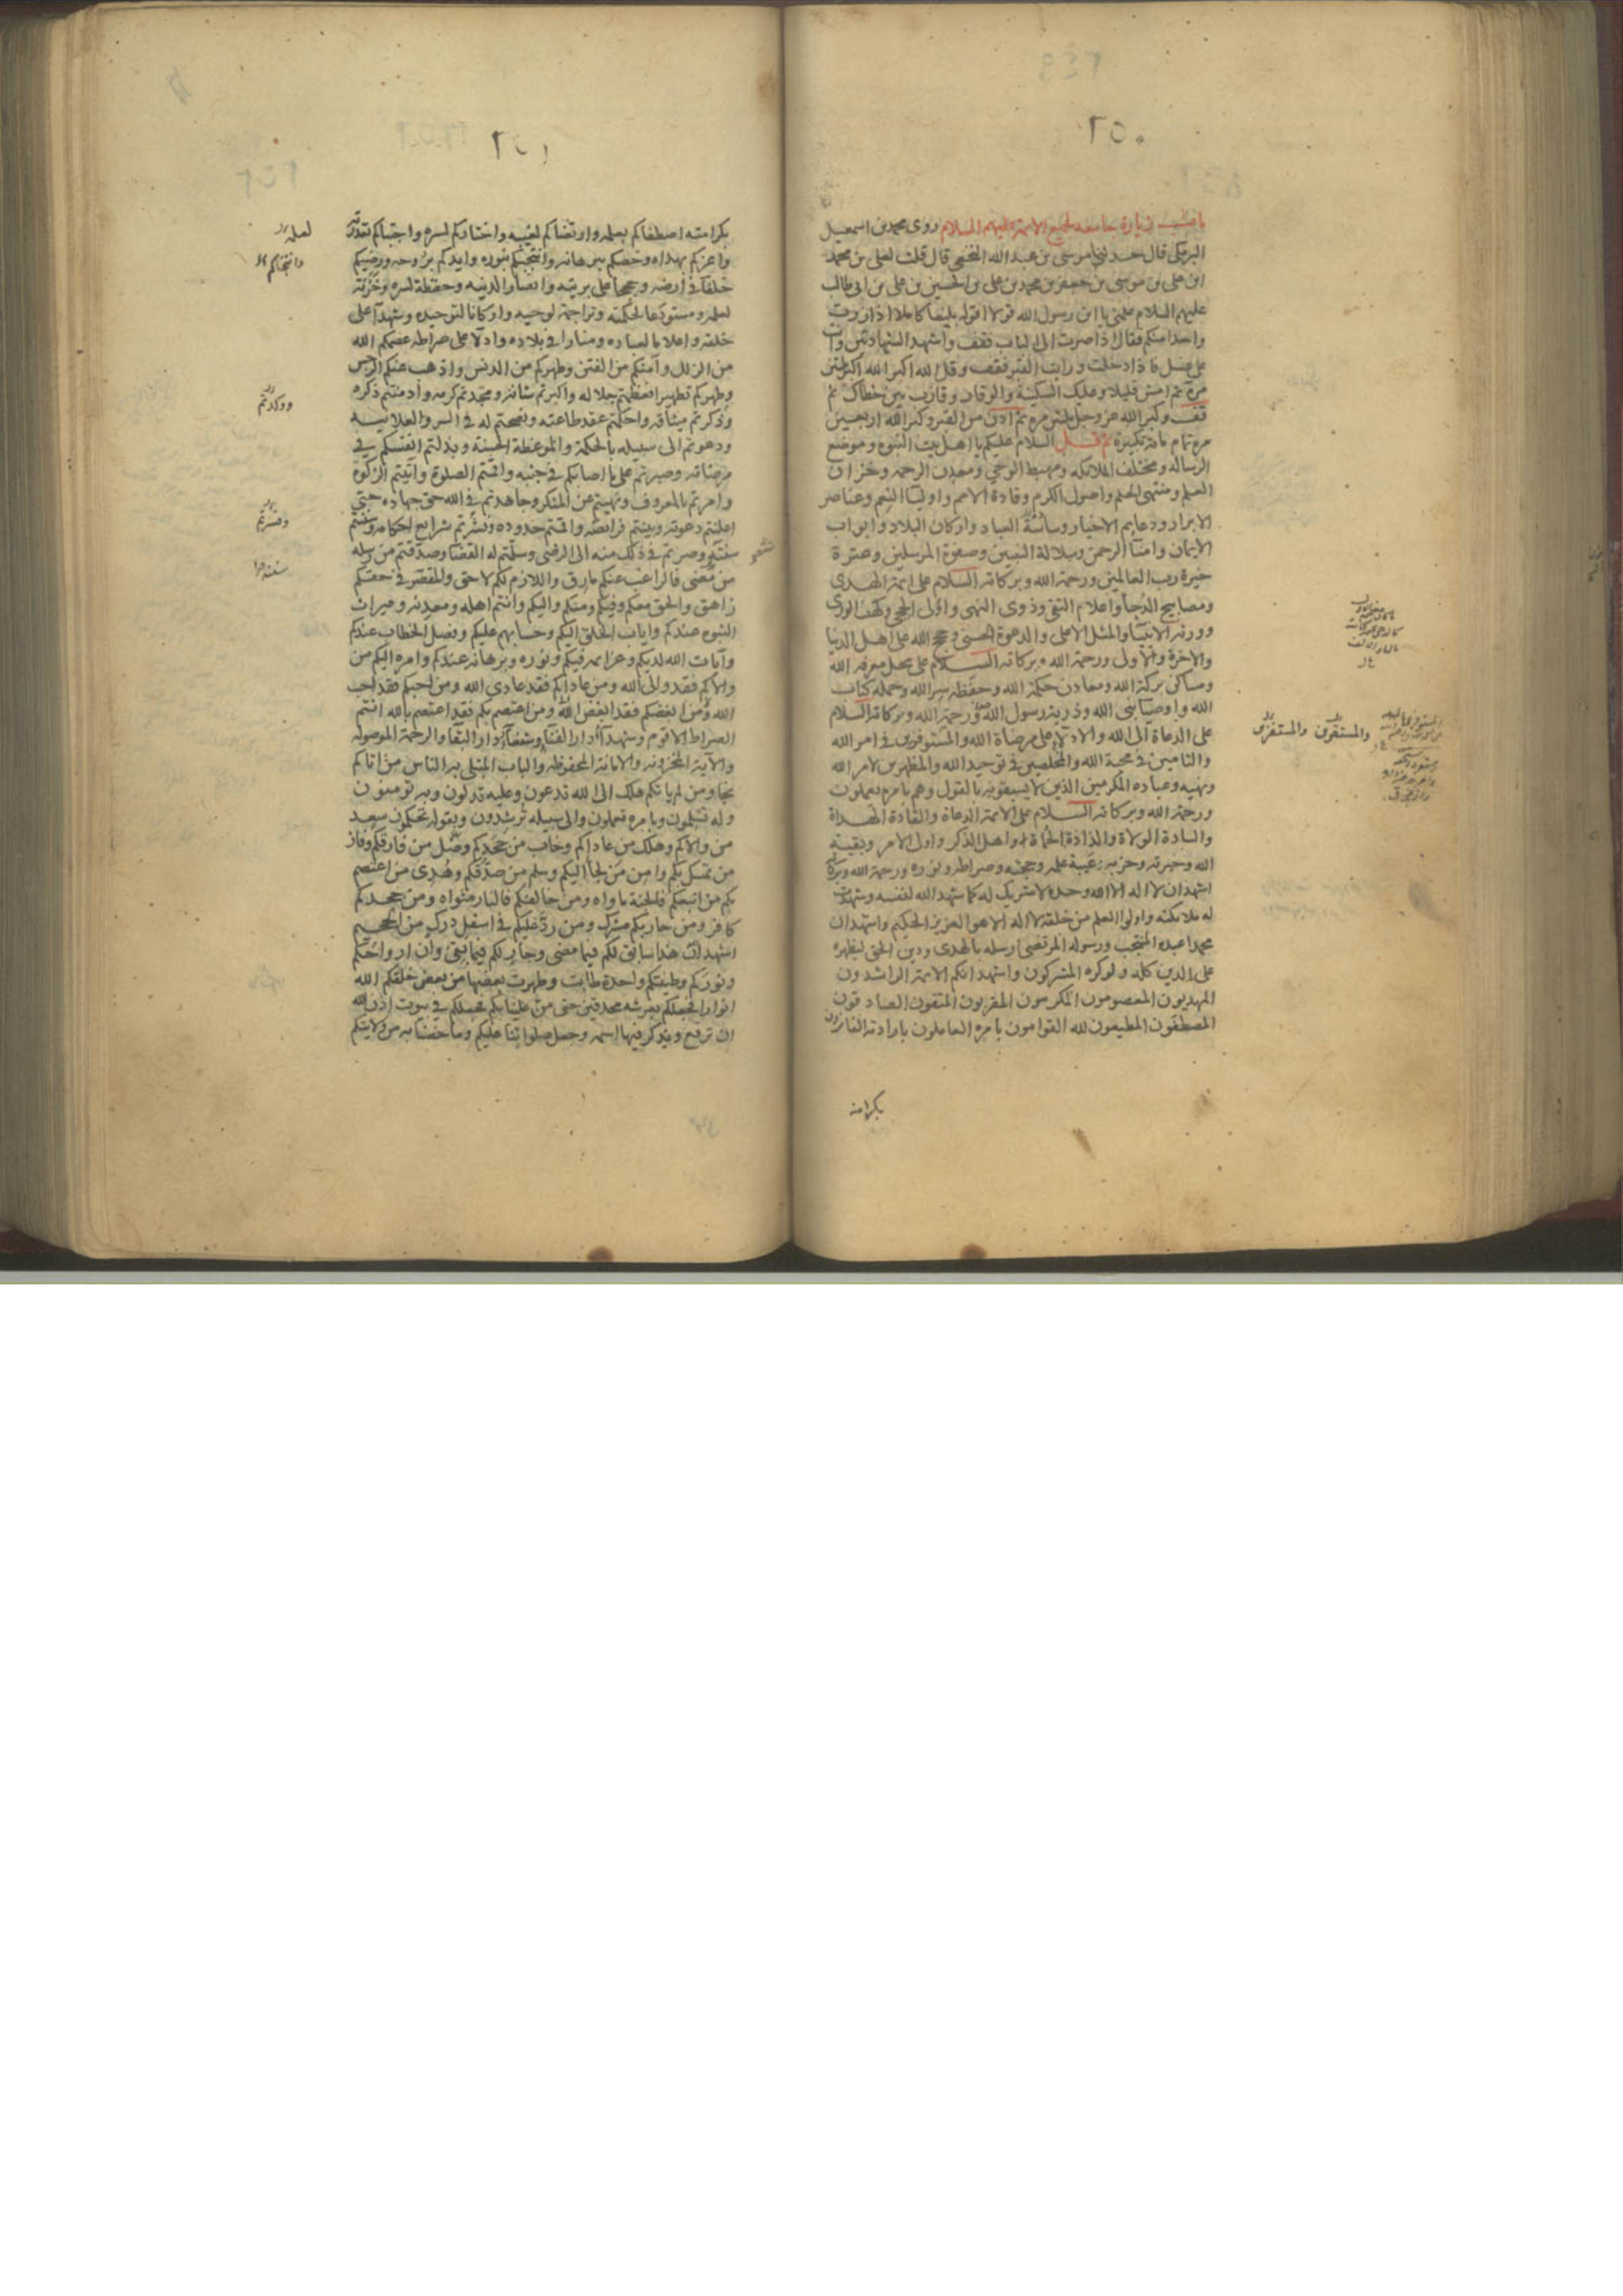 ٢٥٠
باب زيارة جامعة لجميع الائمة عليهم السلام روى محمد بن اسمعيل
البرمكى قال حدثنا موسى بن عبد الله النخعى قال قلت لعلى بن محمد
ابن على بن موسى بن جعفر بن محمد بن على بن الحسين بن على بن ابى طالب
عليهم السلام علمنى يا ابن رسول الله قولا اقوله بليغا كاملا اذا زرت
واحدا منكم فقال اذا صرت الى الباب فقف واشهد الشهادتين وانت
على غسل فاذا دخلت ورايت القبر فقف وقل الله اكبر الله اكبر ثلثين
مرة ثم امش قليلا وعليك السكينة والوقار وقارب بين خطاك ثم
قف وكبر الله عز وجل ثلثين مرة ثم ادن من القبر وكبر الله اربعين
مرة تمام مائة تكبيرة ثم قل السلام عليكم يا اهل بيت النبوه وموضع
الرساله ومختلف الملائكه ومهبط الوحى ومعدن الرحمه وخزان
العلم ومنتهى الحلم واصول الكرم وقادة الامم واوليآ النعم وعناصر
الابرار ودعايم الاخيار وساسة العباد واركان البلاد وابواب
الايمان وامنآ الرحمن وسلالة النبيين وصفوة المرسلين وعترة
خيرة رب العالمين ورحمة الله وبركاته السلام على ائمة الهدى
ومصابيح الدجا واعلام التقى وذوى النهى واولى الحجى وكهف الورى
وورثة الانبيآ والمثل الاعلى والدعوة الحسنى وحجج الله على اهل الدنيا
والاخرة والاولى ورحمة الله وبركاته السلام على محل معرفه الله
ومساكن بركة الله ومعادن حكمة الله وحفظه سر الله وحمله كتاب
الله واوصيآ نبى الله وذرية رسول الله ورحمة الله وبركاته السلام
على الدعاة الى الله والادلآ على مرضاة الله والمستوفرين فى امر الله
والتامين فى محبة الله والمخلصين فى توحيد الله والمظهرين لامر الله
ونهيه وعباده المكرمين الذين لا يسبقونه بالقول وهم بامره يعملون
ورحمة الله وبركاته السلام على الائمة الدعاة والقادة الهداة
والسادة الولاة والذادة الحماة واهل الذكر واولى الامر وبقية
الله وخيرته وحزبه وعيبة علمه وحجته وصراطه ونوره ورحمة الله وبركاته
اشهد ان لا اله الا الله وحده لا شريك له كما شهد الله لنفسه وشهدت
له ملائكته واولوا العلم من خلقه لا اله الا هو العزيز الحكيم واشهد ان
محمدا عبده المنتجب ورسوله المرتضى ارسله بالهدى ودين الحق ليظهره
على الدين كله ولو كره المشركون واشهد انكم الائمة الراشدون
المهديون المعصومون المكرمون المقربون المتقون الصادقون
المصطفون المطيعون لله القوامون بامره العاملون بارادته الفائزون
بكرامته
والمستقرين والمستفزين
٢٥١
بكرامته اصطفاكم بعلمه وارتضاكم لغيبه واختاركم لسره واجتباكم بقدرته
واعزكم بهداه وخصكم ببرهانه وانتجبكم بنوره وايدكم بروحه ورضيكم
خلفآ فى ارضه وحججا على بريته وانصارا لدينه وحفظة لسره وخزنة
لعلمه ومستودعا لحكمته وتراجمة لوحيه واركانا لتوحيده وشهدآ على
خلقه واعلاما لعباده ومنارا فى بلاده وادلآ على صراطه عصمكم الله
من الزلل وآمنكم من الفتن وطهركم من الدنس واذهب عنكم الرجس
وطهركم تطهيرا فعظمتم جلاله واكبرتم شانه ومجدتم كرمه وادمنتم ذكره
وذكرتم ميثاقه واحكمتم عقد طاعته ونصحتم له فى السر والعلانيه
ودعوتم الى سبيله بالحكمة والموعظة الحسنة وبذلتم انفسكم فى
مرضاته وصبرتم على ما اصابكم فى جنبه واقمتم الصلوة واتيتم الزكوة
وامرتم بالمعروف ونهيتم عن المنكر وجاهدتم فى الله حق جهاده حتى
اعلنتم دعوته وبينتم فرائضه واقمتم حدوده ونشرتم شرايع احكامه وسننتم
سنته وصرتم فى ذلك منه الى الرضى وسلمتم له القضا وصدقتم من رسله
من مضى فالراغب عنكم مارق واللازم لكم لاحق والمقصر فى حقكم
زاهق والحق معكم وفيكم ومنكم واليكم وانتم اهله ومعدنه وميراث
النبوه عندكم واياب الخلق اليكم وحسابهم عليكم وفصل الخطاب عندكم
وآيات الله لديكم وعزائمه فيكم ونوره وبرهانه عندكم وامره اليكم من
والاكم فقد والى الله ومن عاداكم فقد عادى الله ومن احبكم فقد احب
الله ومن ابغضكم فقد ابغض الله ومن اعتصم بكم فقد اعتصم بالله انتم
الصراط الاقوم وشهدآ دار الفنآ وشفعآ دار البقآ والرحمة الموصوله
والآية المخزونه والامانة المحفوظه والباب المبتلى به الناس من اتاكم
نجا ومن لم ياتكم هلك الى الله تدعون وعليه تدلون وبه تومنون
وله تسلمون وبامره تعملون والى سبيله ترشدون وبقوله تحكمون سعد
من والاكم وهلك من عاداكم وخاب من جحدكم وضل من فارقكم وفاز
من تمسك بكم وامن من لجأ اليكم وسلم من صدقكم وهدى من اعتصم
بكم من اتبعكم فالجنة ماواه ومن خالفكم فالنار مثواه ومن جحدكم
كافر ومن حاربكم مشرك ومن رد عليكم فى اسفل درك من الجحيم
اشهد ان هذا سابق لكم فيما مضى وجار لكم فيما بقى وان ارواحكم
ونوركم وطينتكم واحدة طابت وطهرت بعضها من بعض خلقكم الله
انوارا فجعلكم بعرشه محدقين حتى من علينا بكم فجعلكم فى بيوت اذن الله
ان ترفع ويذكر فيها اسمه وجعل صلواتنا عليكم وما خصنا به من ولايتكم
لعلمه
وانتجاكم
ووكدتم
وفسرتم